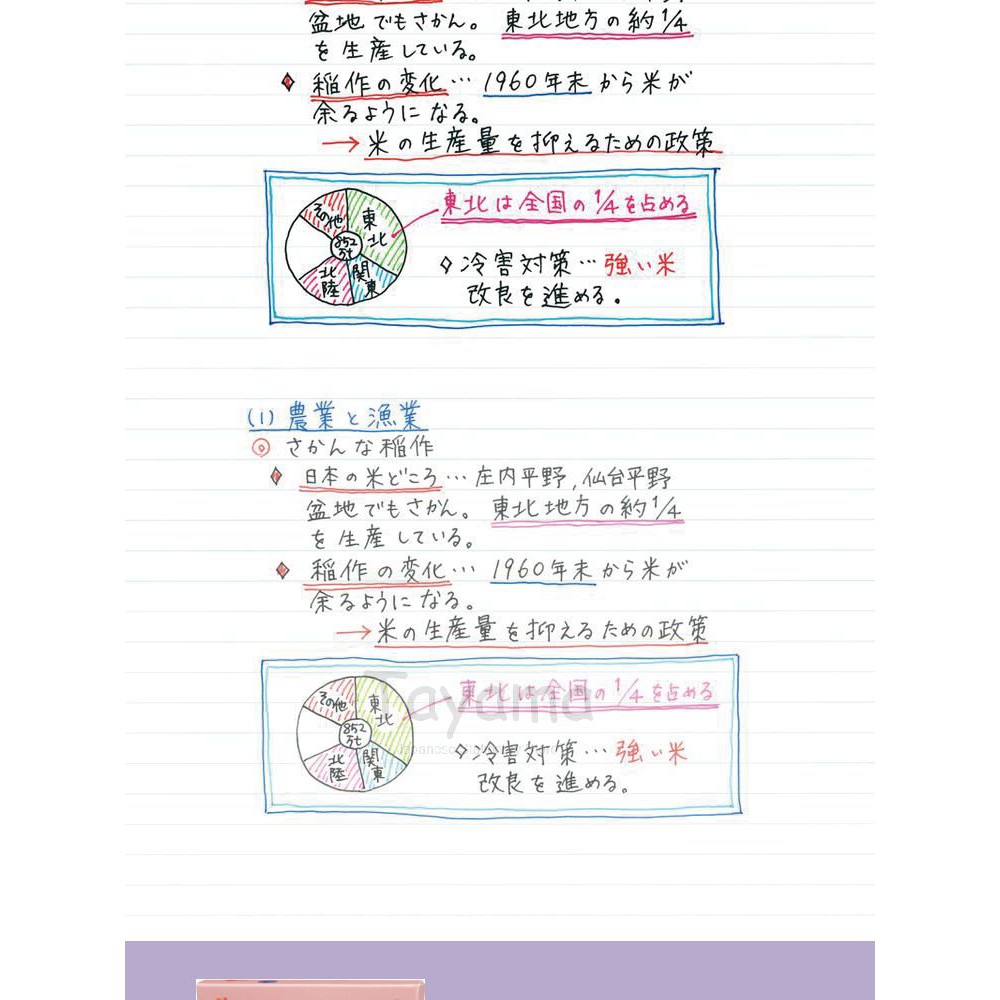 盆地でもさかん。東北地方の約1/4
を生産している。
稲作の変化… 1960年末から米が
余るようになる。
→米の生産量を抑えるための政策
その他
東北
852
万t
北陸
関東
東北は全国の1/4を占める
◇冷害対策…強い米
改良を進める。
(1) 農業と漁業
◎ さかんな稲作
◆ 日本の米どころ… 庄内平野,仙台平野
盆地でもさかん。東北地方の約1/4
を生産している。
◆ 稲作の変化… 1960年末から米が
余るようになる。
→米の生産量を抑えるための政策
その他
東北
852
万t
北陸
関東
Tayama
東北は全国の1/4を占める
◇冷害対策…強い米
改良を進める。